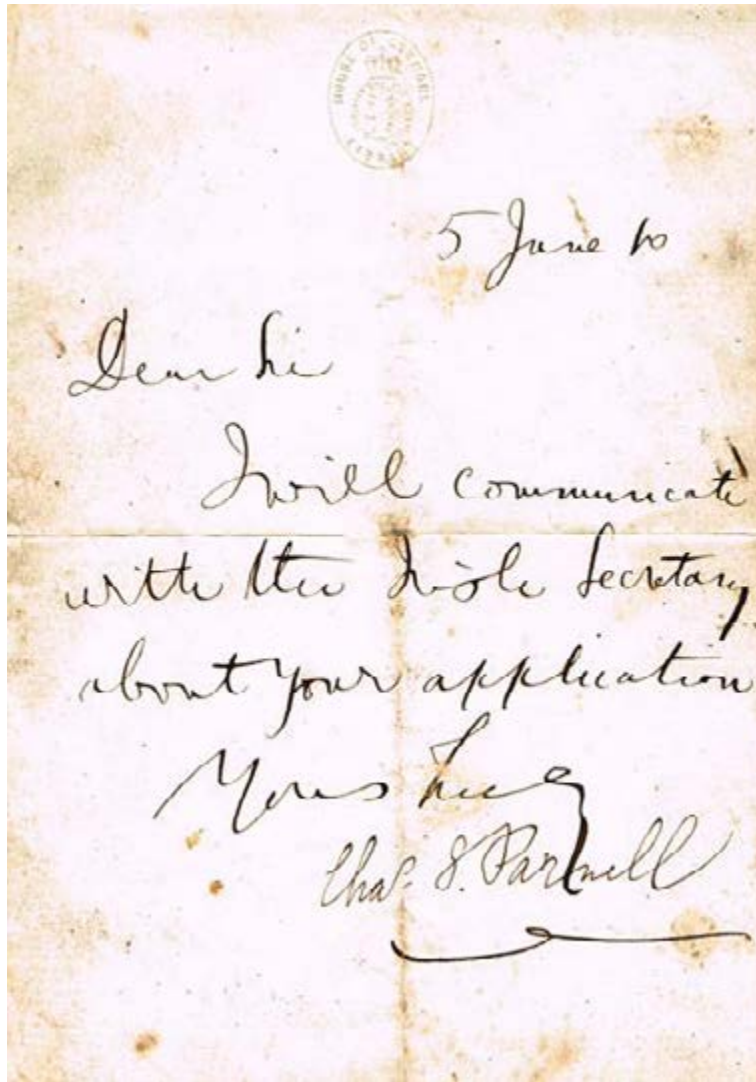 HOUSE OF COMMONS
LIBRARY
5 June
Dear Sir
I will communicate
with the Irish Secretary
about your application
Yours truly
Chas. S. Parnell